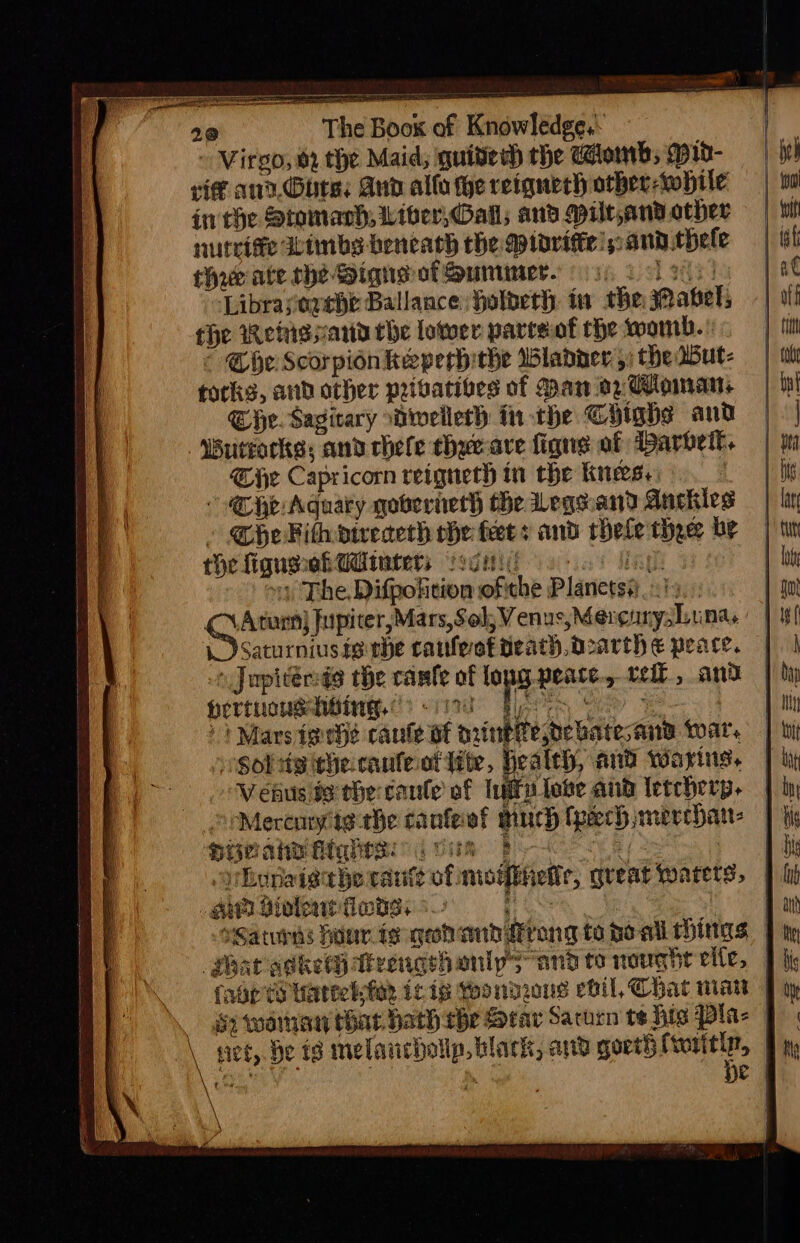 20 The Book of Knowledge.
Virgo, or the Maid, guideth the Womb, Mid-
riff and Guts: And also she reigneth other-while
in the Stomach, Liver, Gall, and Milt, and other
nutritife Limbs beneath the Midriffe; and these
thrée are the Signs of Summer.
Libra, or the Ballance holdeth in the Navel,
the Reins, and the lower parts of the womb.
The Scorpion kéepeth the Bladder, the But-
tocks, and other privatives of Man or Woman.
The Sagitary dwelleth in the Thighs and
Buttocks; and these thrée are signs of Harvest.
The Capricorn reigneth in the knées.
The Aquary governeth the Legs and Anckles
The Fish directeth the féet: and these thrée be
the signs of Winter.
The Disposition of the Planets.
SAturn, Jupiter, Mars, Sol, Venus, Mercury, Luna.
Saturnius is the cause of death, dearth & peace.
Jupiter is the cause of long peace, rest, and
vertuous living.
Mars is the cause of debate, and war.
Sol is the cause of life, health, and waxing.
Venus is the cause of lusty love and letchery.
Mercury is the cause of much spéech, merchan-
dize and
Luna is the cause of moistnesse, great waters,
and violent floods.
Saturns hour is good and strong to do all things
that asketh strength only, and to nought else,
save to battel, for it is wondrous evil. That man
or woman that hath the Star Saturn to his Pla-
net, he is melancholly, black, and goeth swiftly,
he